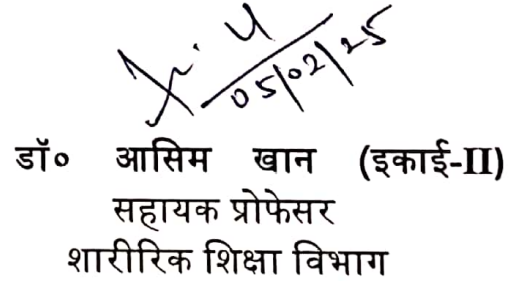 05/02/25
डॉ० आसिम खान (इकाई-II)
सहायक प्रोफेसर
शारीरिक शिक्षा विभाग